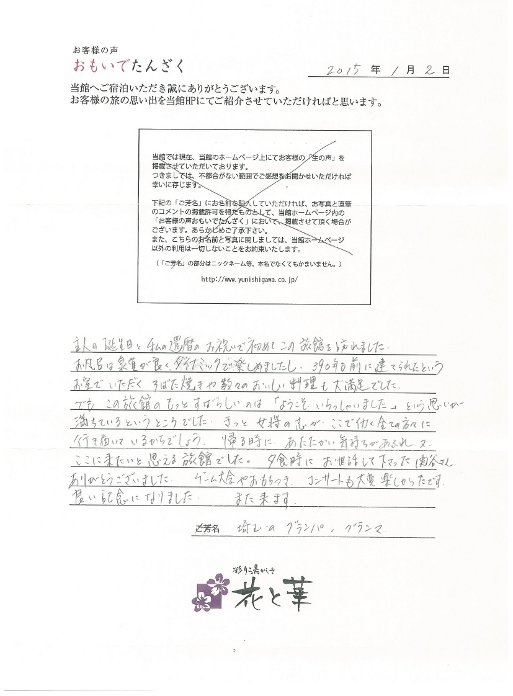 お客様の声
おもいでたんざく
2015年1月2日
当館へご宿泊いただき誠にありがとうございます。
お客様の旅の思い出を当館HPにてご紹介させていただければと思います。
当館では現在、当館のホームページ上にてお客様の「生の声」を
掲載させていただいております。
つきましては、不都合がない範囲でご感想をお聞かせいただければ
幸いに存じます。
下記の「ご芳名」にお名前を記入していただければ、お写真と直筆
のコメントの掲載許可を得たものとして、当館ホームページ内の
「お客様の声おもいでたんざく」において、掲載させて頂く場合が
ございます。あらかじめご了承下さい。
また、こちらのお名前と写真に関しましては、当館ホームページ
以外の利用は一切しないことをお約束いたします。
(「ご芳名」の部分はニックネーム等、本名でなくてもかまいません。)
http://www.yunishigawa.co.jp/
主人の誕生日と私の還暦のお祝いで初めてこの旅館を訪れました。
お風呂は泉質が良くダイナミックで楽しめましたし、390年前に建てられたという
お室でいただくろばた焼きや数々のおいしい料理も大満足でした。
でも、この旅館のもっとすばらしいのは「ようこそいらっしゃいました」という思いが
満ちているというところでした。きっと女将の志が、ここで働く全ての方々に
行き届いているからでしょう。帰る時に、あたたかい気持ちがあふれ、又
ここに来たいと思える旅館でした。夕食時にお世話して下さった さん
ありがとうございました。ゲーム大会やおもちつき、コンサートも大変楽しかったです。
良い記念になりました。また来ます。
ご芳名 埼玉のグランパ・グランマ
花と華